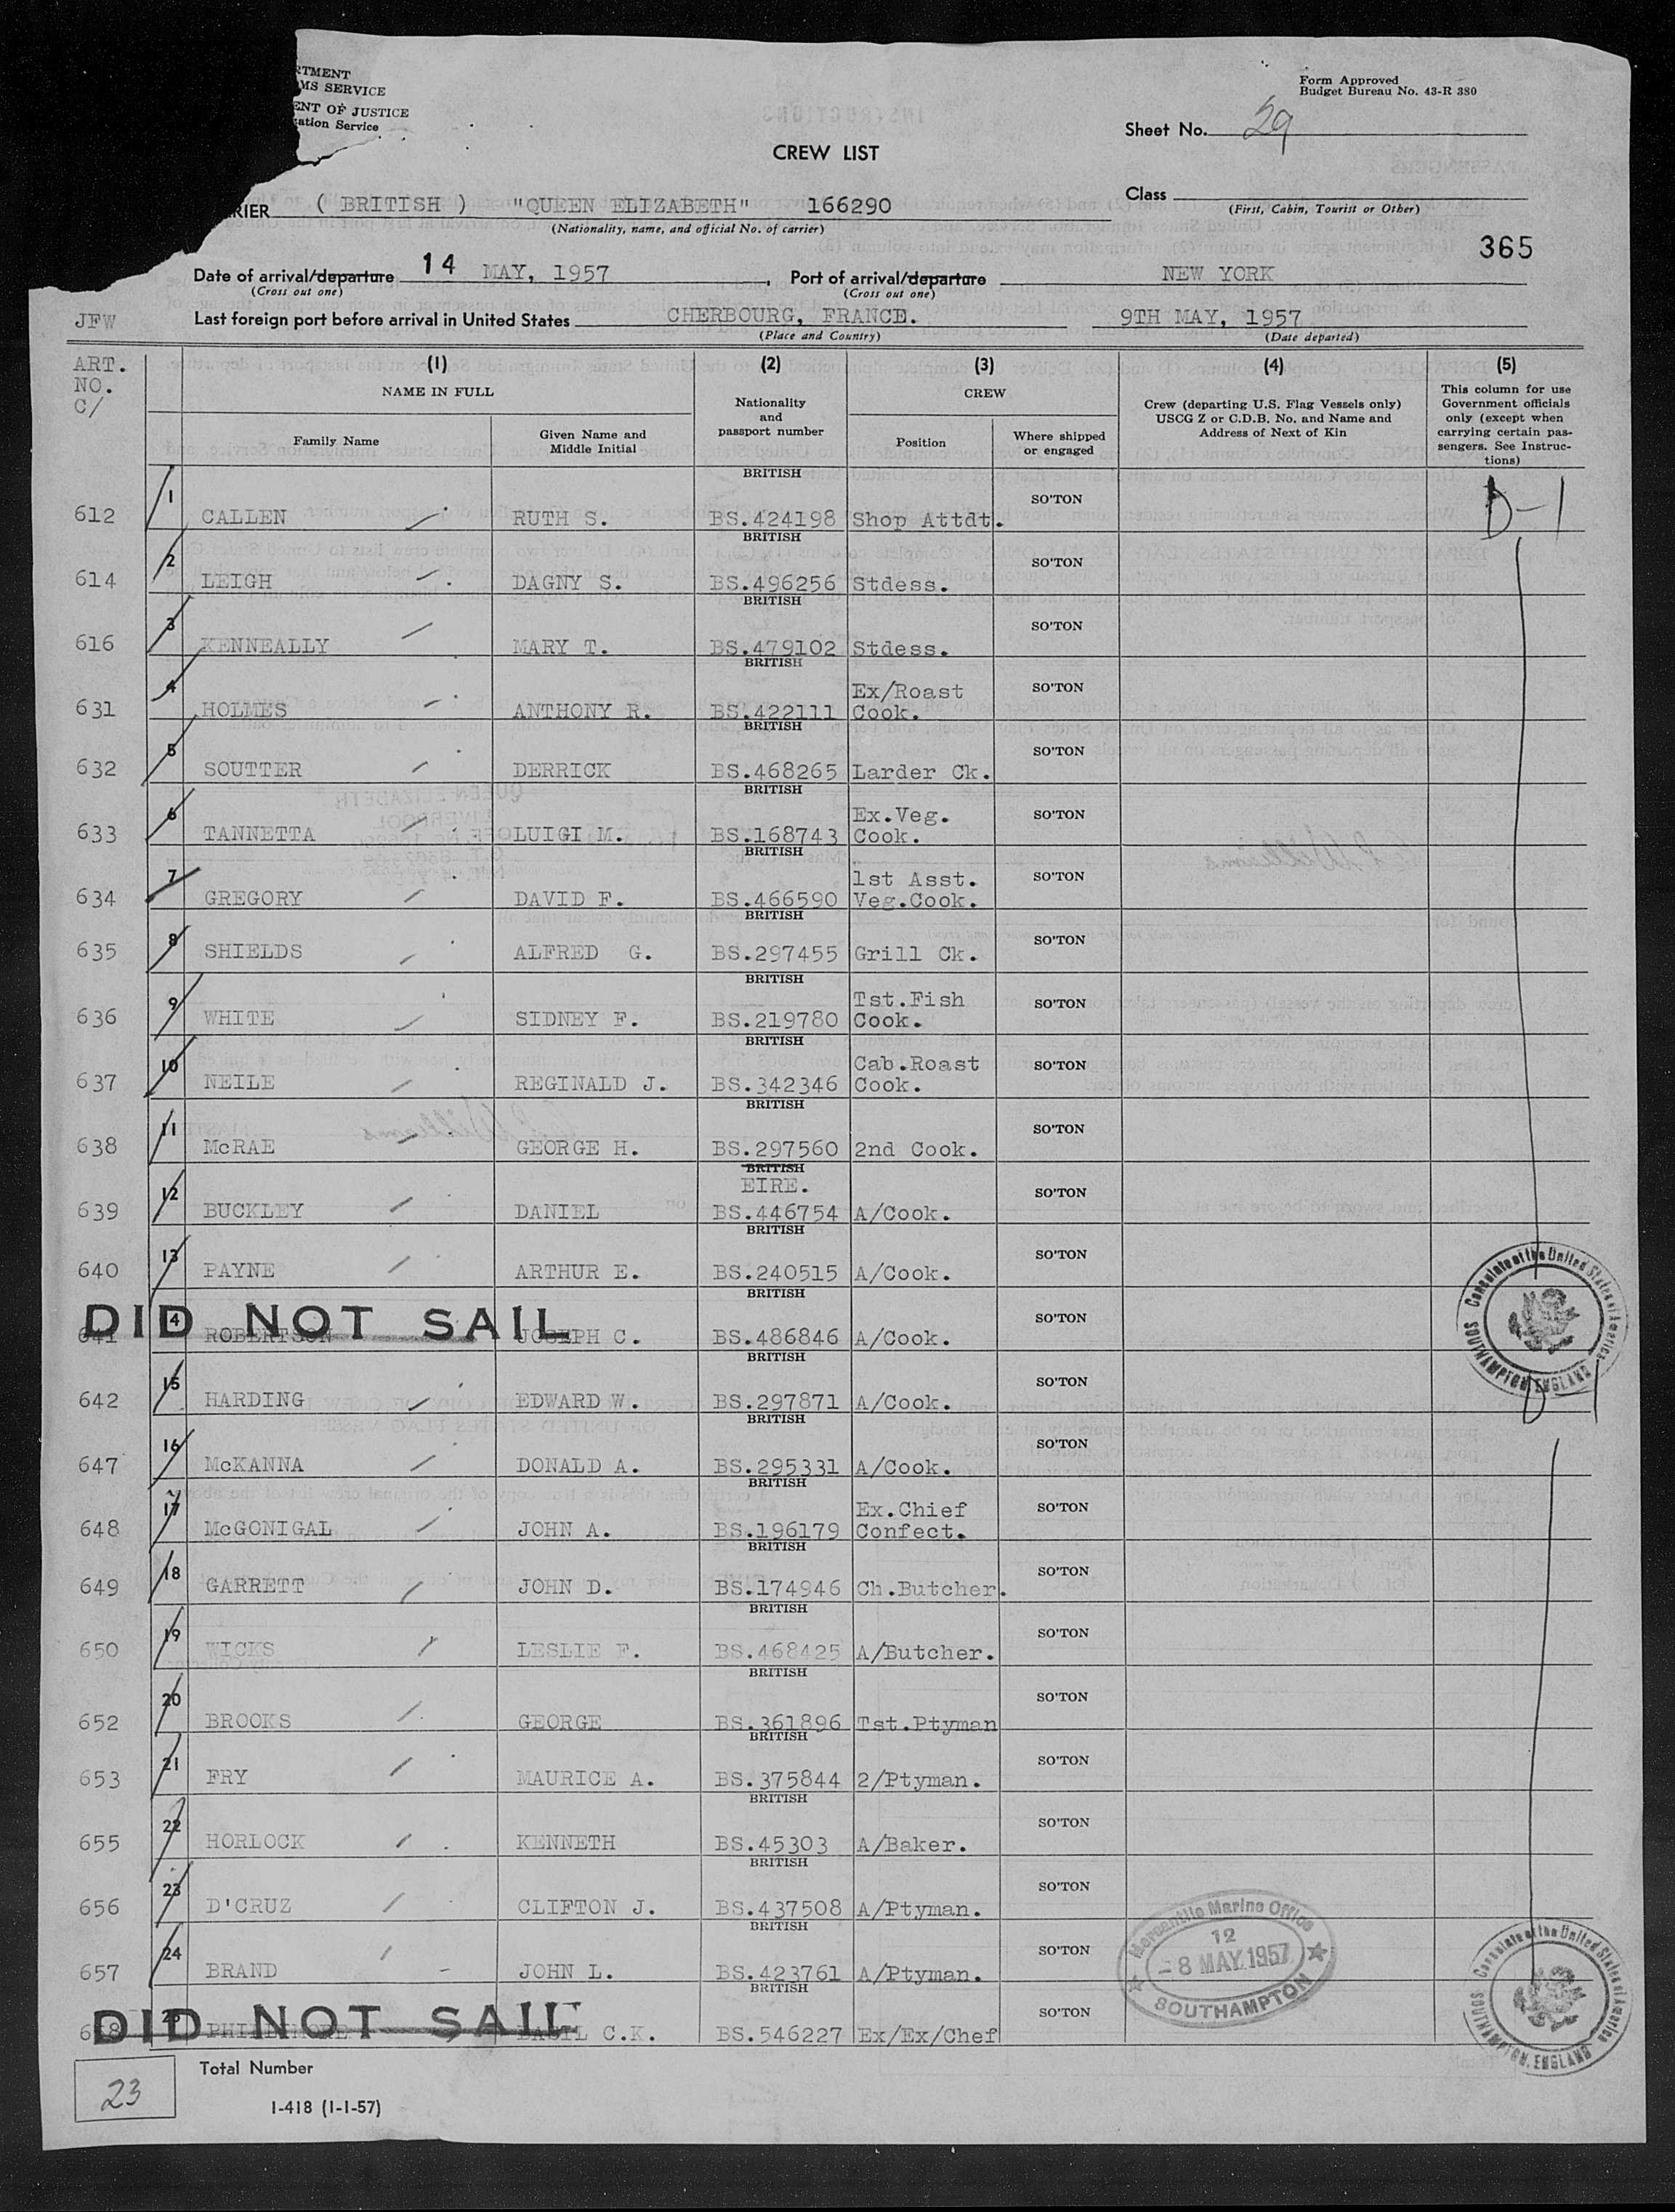 RTMENT
MS SERVICE
ENT OF JUSTICE
ation Service
Form Approved
Budget Bureau No. 43-R 380
Sheet No. 29
CREW LIST
RIER ( BRITISH ) "QUEEN ELIZABETH" 166290
(Nationality, name, and official No. of carrier)
Class
(First, Cabin, Tourist or Other)
365
Date of arrival/departure 14 MAY, 1957, Port of arrival/departure NEW YORK
(Cross out one) (Cross out one)
JFW Last foreign port before arrival in United States CHERBOURG, FRANCE. 9TH MAY, 1957
(Place and Country) (Date departed)
ART. NO. C/
(1) (2) (3) (4) (5)
NAME IN FULL
Family Name
Given Name and Middle Initial
Nationality and passport number
CREW
Position
Where shipped or engaged
Crew (departing U.S. Flag Vessels only) USCG Z or C.D.B. No. and Name and Address of Next of Kin
This column for use Government officials only (except when carrying certain passengers. See Instructions)
612 1 CALLEN RUTH S. BRITISH BS.424198 Shop Attdt. SO'TON D-1
614 2 LEIGH DAGNY S. BRITISH BS.496256 Stdess. SO'TON
616 3 KENNEALLY MARY T. BRITISH BS.479102 Stdess. SO'TON
631 4 HOLMES ANTHONY R. BRITISH BS.422111 Ex/Roast Cook. SO'TON
632 5 SOUTTER DERRICK BRITISH BS.468265 Larder Ck. SO'TON
633 6 TANNETTA LUIGI M. BRITISH BS.168743 Ex.Veg. Cook. SO'TON
634 7 GREGORY DAVID F. BRITISH BS.466590 1st Asst. Veg.Cook. SO'TON
635 8 SHIELDS ALFRED G. BRITISH BS.297455 Grill Ck. SO'TON
636 9 WHITE SIDNEY F. BRITISH BS.219780 Tst.Fish Cook. SO'TON
637 10 NEILE REGINALD J. BRITISH BS.342346 Cab.Roast Cook. SO'TON
638 11 McRAE GEORGE H. BRITISH BS.297560 2nd Cook. SO'TON
639 12 BUCKLEY DANIEL BRITISH EIRE. BS.446754 A/Cook. SO'TON
640 13 PAYNE ARTHUR E. BRITISH BS.240515 A/Cook. SO'TON
DID NOT SAIL
641 14 ROBERTSON JOSEPH C. BRITISH BS.486846 A/Cook. SO'TON
Consulate of the United States of America
SOUTHAMPTON, ENGLAND
642 15 HARDING EDWARD W. BRITISH BS.297871 A/Cook. SO'TON D 1
647 16 McKANNA DONALD A. BRITISH BS.295331 A/Cook. SO'TON
648 17 McGONIGAL JOHN A. BRITISH BS.196179 Ex.Chief Confect. SO'TON
649 18 GARRETT JOHN D. BRITISH BS.174946 Ch.Butcher. SO'TON
650 19 WICKS LESLIE F. BRITISH BS.468425 A/Butcher. SO'TON
652 20 BROOKS GEORGE BRITISH BS.361896 Tst.Ptyman SO'TON
653 21 FRY MAURICE A. BRITISH BS.375844 2/Ptyman. SO'TON
655 22 HORLOCK KENNETH BRITISH BS.45303 A/Baker. SO'TON
656 23 D'CRUZ CLIFTON J. BRITISH BS.437508 A/Ptyman. SO'TON
657 24 BRAND JOHN L. BRITISH BS.423761 A/Ptyman. SO'TON
Mercantile Marine Office
12
- 8 MAY 1957
SOUTHAMPTON
DID NOT SAIL
658 25 BASIL C.K. BRITISH BS.546227 Ex/Ex/Chef SO'TON
Consulate of the United States of America
SOUTHAMPTON, ENGLAND
23 Total Number
I-418 (1-1-57)